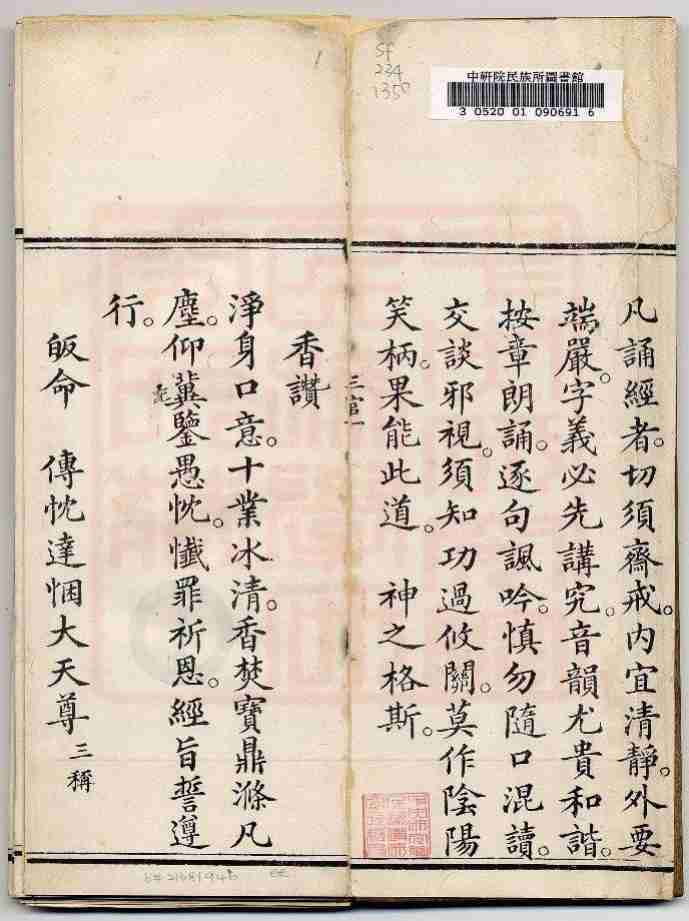 中研院民族所圖書館
3 0520 01 090691 6
SF
234
1350
1
凡誦經者。切須齋戒。內宜清靜。外要
端嚴。字義必先講究。音韻尤貴和諧。
按章朗誦。逐句諷吟。慎勿隨口混讀。
交談邪視。須知功過攸關。莫作陰陽
笑柄。果能此道。神之格斯。
三官一
香讚
淨身口意。十業冰清。香焚寶鼎滌凡
塵。仰冀鑒愚忱。懺罪祈恩。經旨誓遵
行。
皈命 傳忱達悃大天尊 三稱